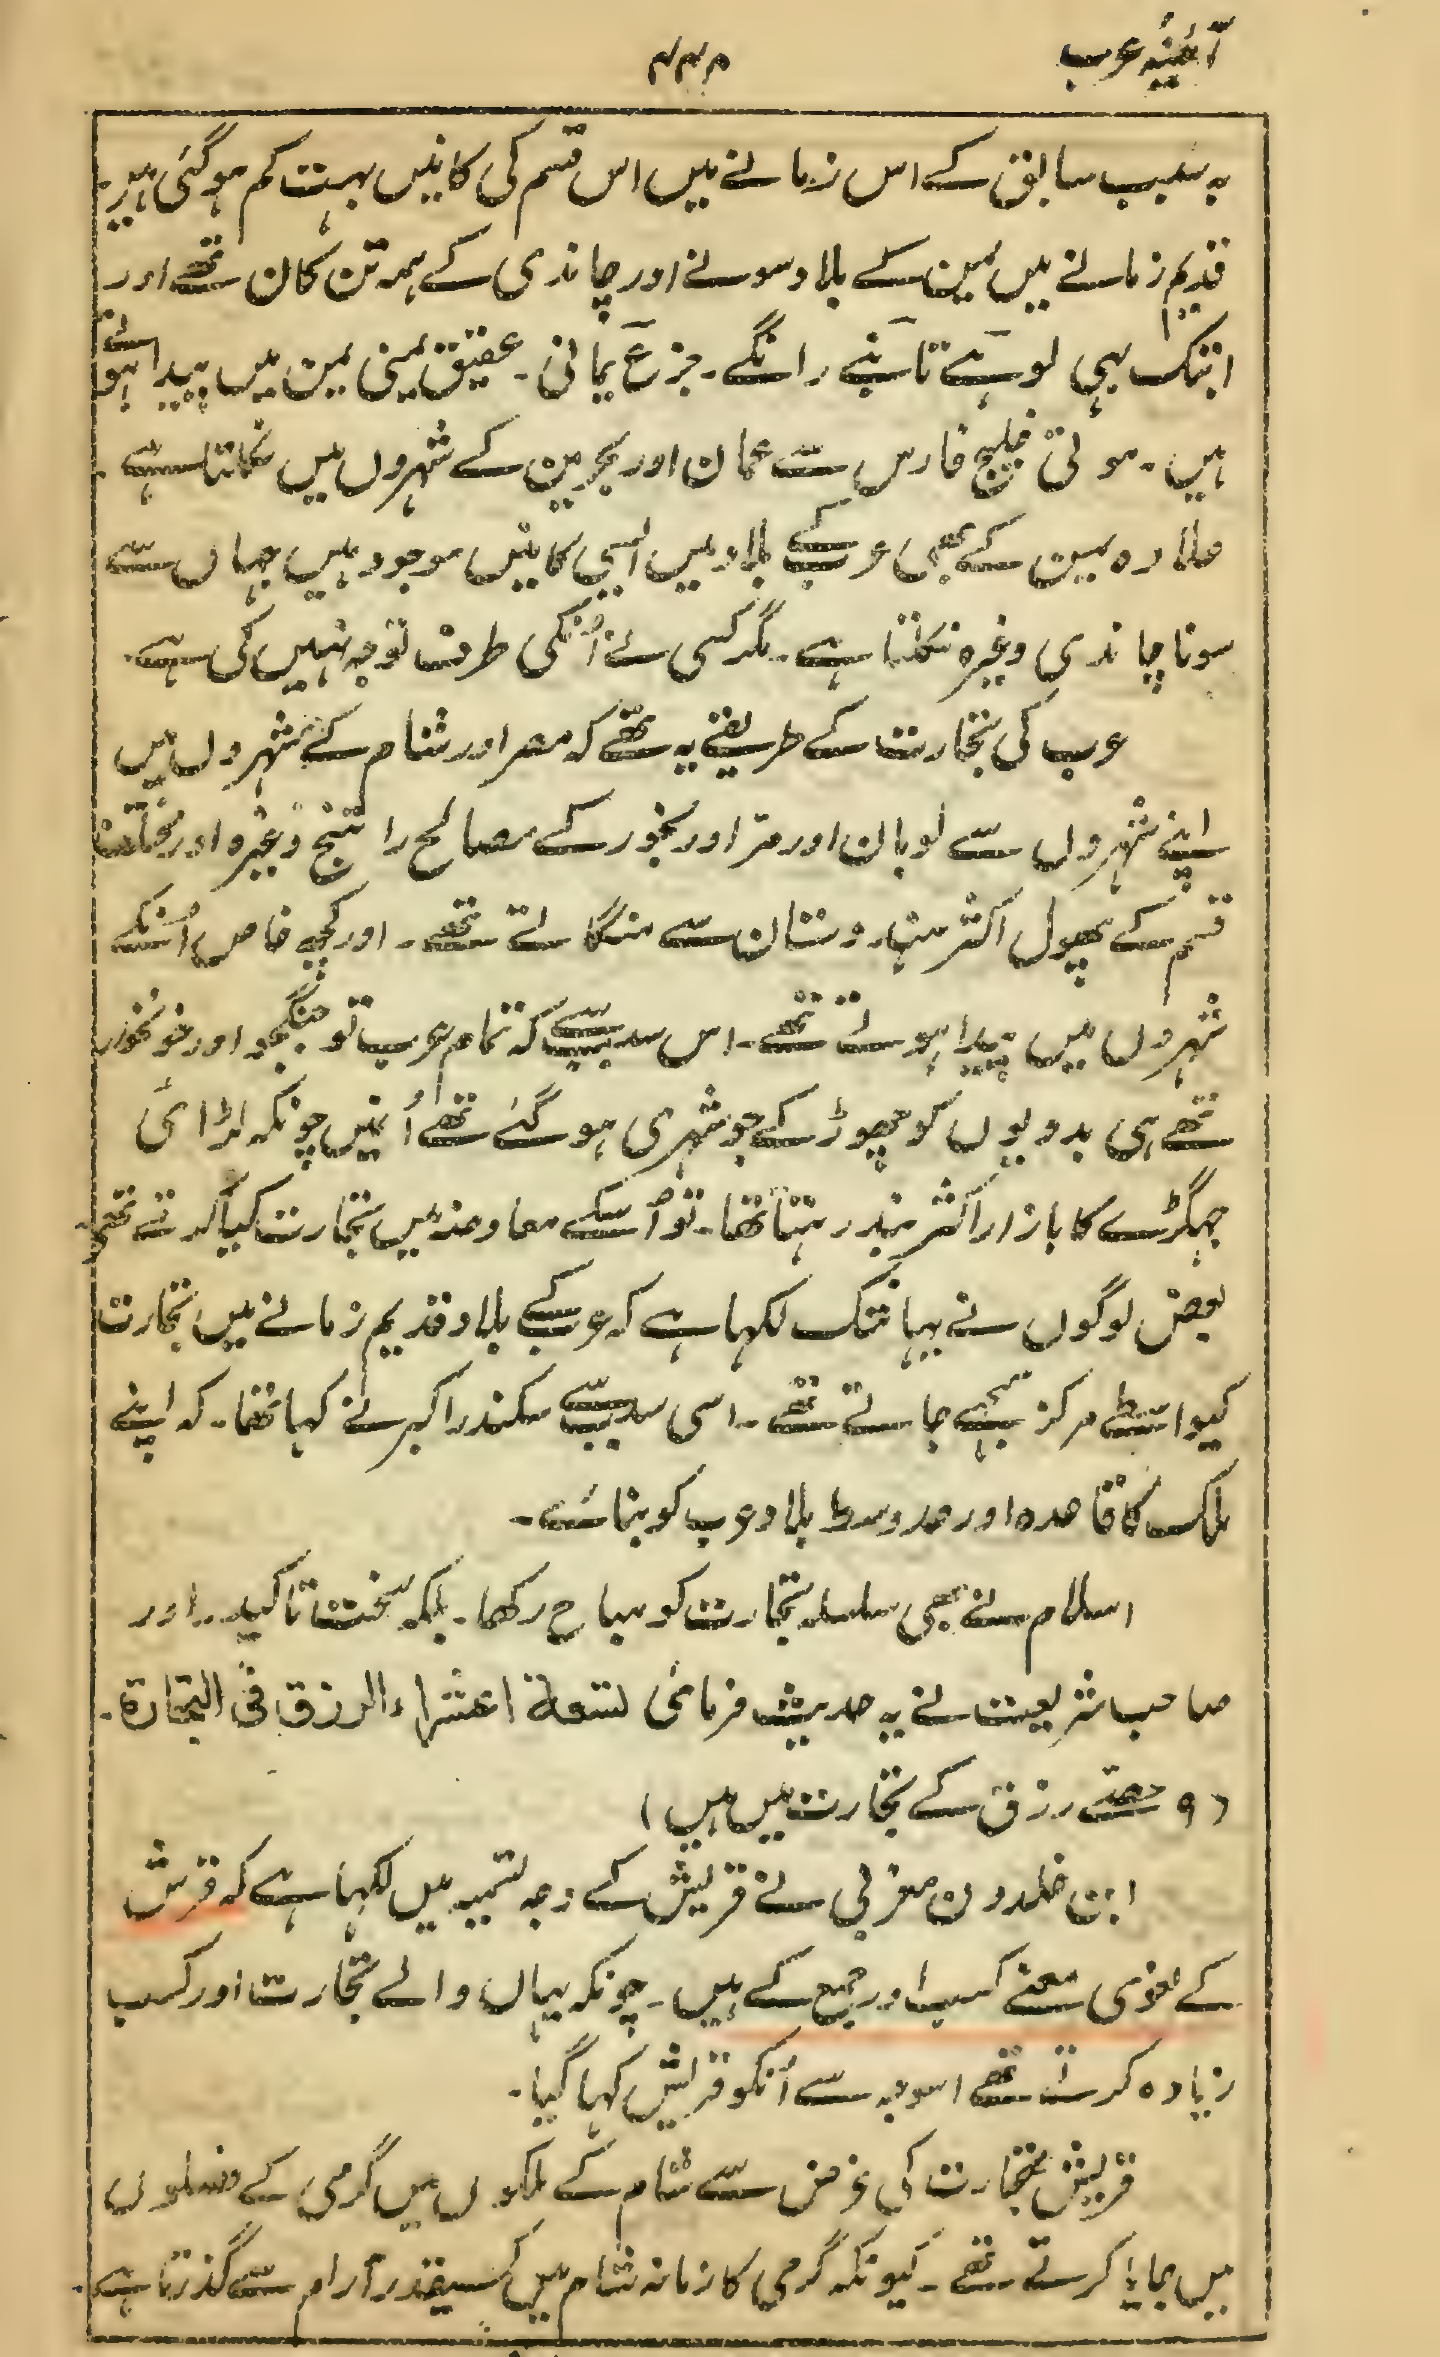 آئینۂ عرب
۴۴۴
بہ سبب سابق کے اس زمانے میں اس قسم کی کانیں بہت کم ہوگئی ہیں۔
قدیم زمانے میں یمن کے بلاد سونے اور چاندی کے ہمہ تن کان تھے اور
ابتک بہی لوہے تانبے رانگے۔ جزع یمانی۔ عقیق یمنی یمن میں پیدا ہوتے
ہیں۔ موتی خلیج فارس سے عمان اور بحرین کے شہروں میں نکلتا ہے۔
علاوہ یمن کے بھی عرب کے بلاد میں ایسی کانیں موجود ہیں جہاں سے
سونا چاندی وغیرہ نکلتا ہے۔ مگر کسی نے اُنکی طرف توجہ نہیں کی ہے۔
عرب کی تجارت کے طریقے یہ تھے کہ مصر اور شام کے شہروں میں
اپنے شہروں سے لوبان اور مر اور بخور کے مصالح راتنج وغیرہ اور مختلف
قسم کے پھول اکثر ہندوستان سے منگاتے تھے۔ اور کچھ خاص اُنکے
شہروں میں پیدا ہوتے تھے۔ اس سبب سے کہ تمام عرب تو جنگجو اور خونخوار
تھے ہی بدویوں کو چھوڑ کے جو شہری ہوگئے تھے اُنمیں چونکہ لڑائی
جہگڑے کا بازار اکثر بند رہتا تھا۔ تو اُسکے معاوضہ میں تجارت کیا کرتے تھے۔
بعض لوگوں نے یہانتک لکہا ہے کہ عرب کے بلاد قدیم زمانے میں تجارت
کیواسطے مرکز سمجہے جاتے تھے۔ اسی سبب سے سکندر اکبر نے کہا تھا۔ کہ اپنے
ملک کا قاعدہ اور حد وسط بلاد عرب کو بنائے۔
اسلام نے بھی سلسلہ تجارت کو مباح رکھا۔ بلکہ سخت تاکید۔ اور
صاحب شریعت نے یہ حدیث فرمائی تسعة اعشراء الرزق فی التجارة۔
(۹ حصے رزق کے تجارت میں ہیں)
ابن خلدون مغربی نے قریش کے وجہ تسمیہ میں لکہا ہے کہ قرش
کے لغوی معنے کسب اور جمع کے ہیں۔ چونکہ یہاں والے تجارت اور کسب
زیادہ کرتے تھے اسوجہ سے اُنکو قریش کہا گیا۔
قریش تجارت کی غرض سے شام کے ملکوں میں گرمی کے فصلوں
میں جایا کرتے تھے۔ کیونکہ گرمی کا زمانہ شام میں کسیقدر آرام سے گذرتا ہے۔